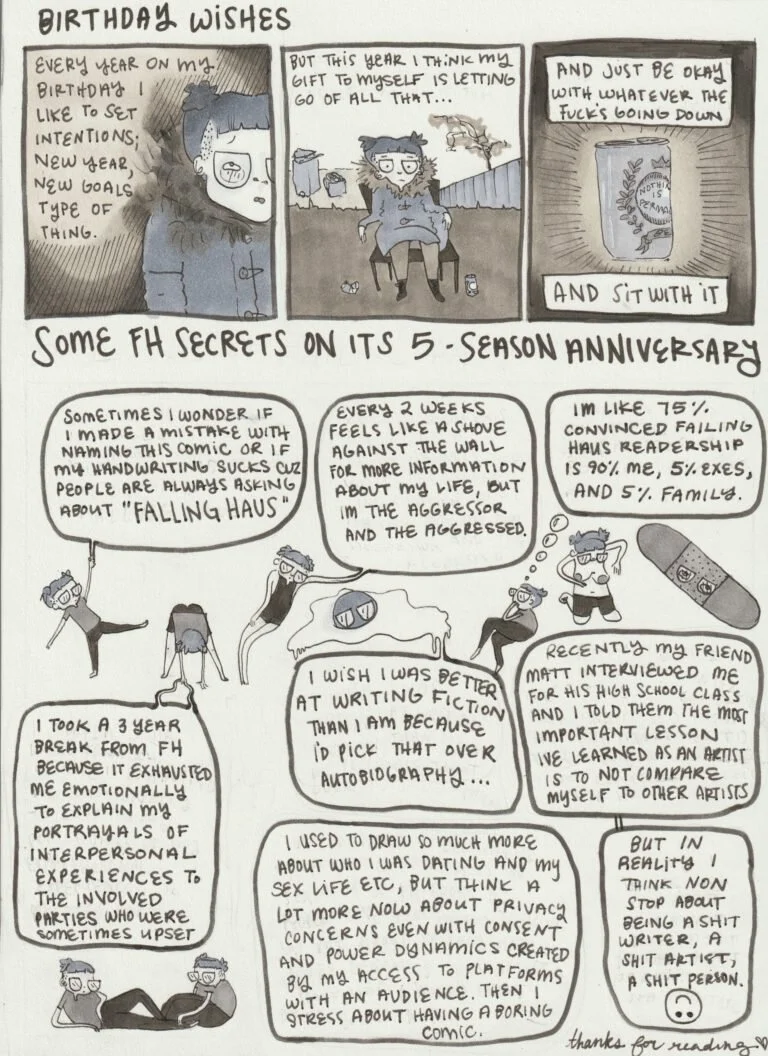 BIRTHDAY WISHES
EVERY YEAR ON MY
BIRTHDAY I
LIKE TO SET
INTENTIONS;
NEW YEAR,
NEW GOALS
TYPE OF
THING.
BUT THIS YEAR I THINK MY
GIFT TO MYSELF IS LETTING
GO OF ALL THAT...
AND JUST BE OKAY
WITH WHATEVER THE
FUCK'S GOING DOWN
NOTHIN
IS
PERMA
AND SIT WITH IT
SOME FH SECRETS ON ITS 5-SEASON ANNIVERSARY
SOMETIMES I WONDER IF
I MADE A MISTAKE WITH
NAMING THIS COMIC OR IF
MY HANDWRITING SUCKS CUZ
PEOPLE ARE ALWAYS ASKING
ABOUT "FALLING HAUS"
EVERY 2 WEEKS
FEELS LIKE A SHOVE
AGAINST THE WALL
FOR MORE INFORMATION
ABOUT MY LIFE, BUT
IM THE AGGRESSOR
AND THE AGGRESSED.
IM LIKE 75%
CONVINCED FAILING
HAUS READERSHIP
IS 90% ME, 5% EXES,
AND 5% FAMILY.
I TOOK A 3 YEAR
BREAK FROM FH
BECAUSE IT EXHAUSTED
ME EMOTIONALLY
TO EXPLAIN MY
PORTRAYALS OF
INTERPERSONAL
EXPERIENCES TO
THE INVOLVED
PARTIES WHO WERE
SOMETIMES UPSET
I WISH I WAS BETTER
AT WRITING FICTION
THAN I AM BECAUSE
I'D PICK THAT OVER
AUTOBIOGRAPHY...
RECENTLY MY FRIEND
MATT INTERVIEWED ME
FOR HIS HIGH SCHOOL CLASS
AND I TOLD THEM THE MOST
IMPORTANT LESSON
IVE LEARNED AS AN ARTIST
IS TO NOT COMPARE
MYSELF TO OTHER ARTISTS
I USED TO DRAW SO MUCH MORE
ABOUT WHO I WAS DATING AND MY
SEX LIFE ETC, BUT THINK A
LOT MORE NOW ABOUT PRIVACY
CONCERNS EVEN WITH CONSENT
AND POWER DYNAMICS CREATED
BY MY ACCESS TO PLATFORMS
WITH AN AUDIENCE. THEN I
STRESS ABOUT HAVING A BORING
COMIC.
BUT IN
REALITY I
THINK NON
STOP ABOUT
BEING A SHIT
WRITER, A
SHIT ARTIST,
A SHIT PERSON.
thanks for reading